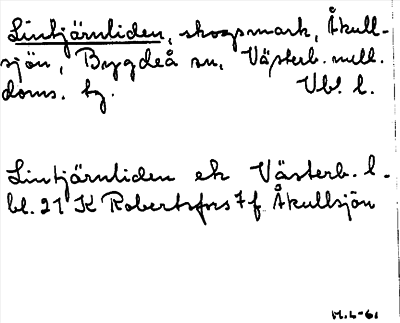 Lintjärnliden, skogsmark, Åkull-
sjön, Bygdeå sn, Västerb. mell.
doms. tg. Vb. l.
Lintjärnliden ek Västerb. l.
bl. 21 K Robertsfors 7f Åkullsjön
M.L-61